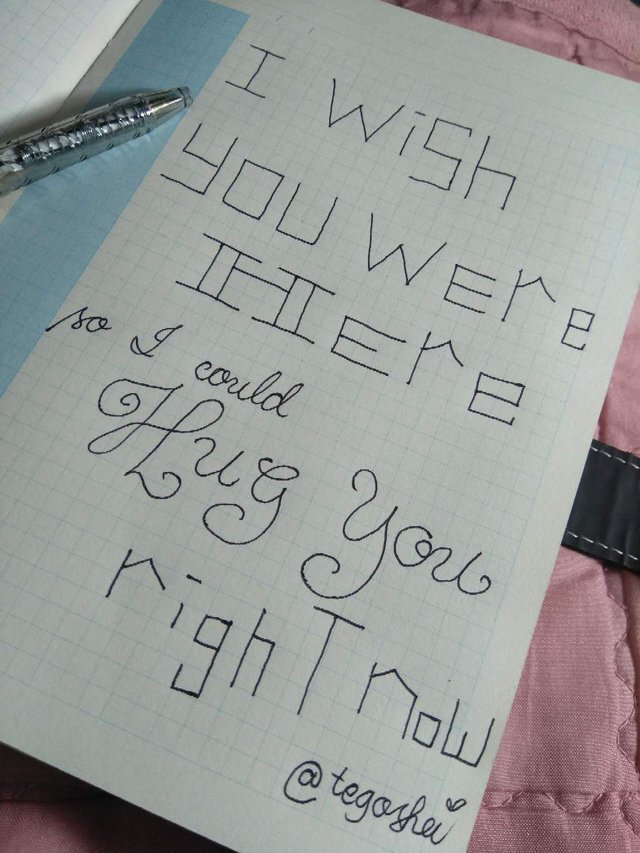 I WiSh
you were
Here
so I could
Hug You
righT now
@tegoshei